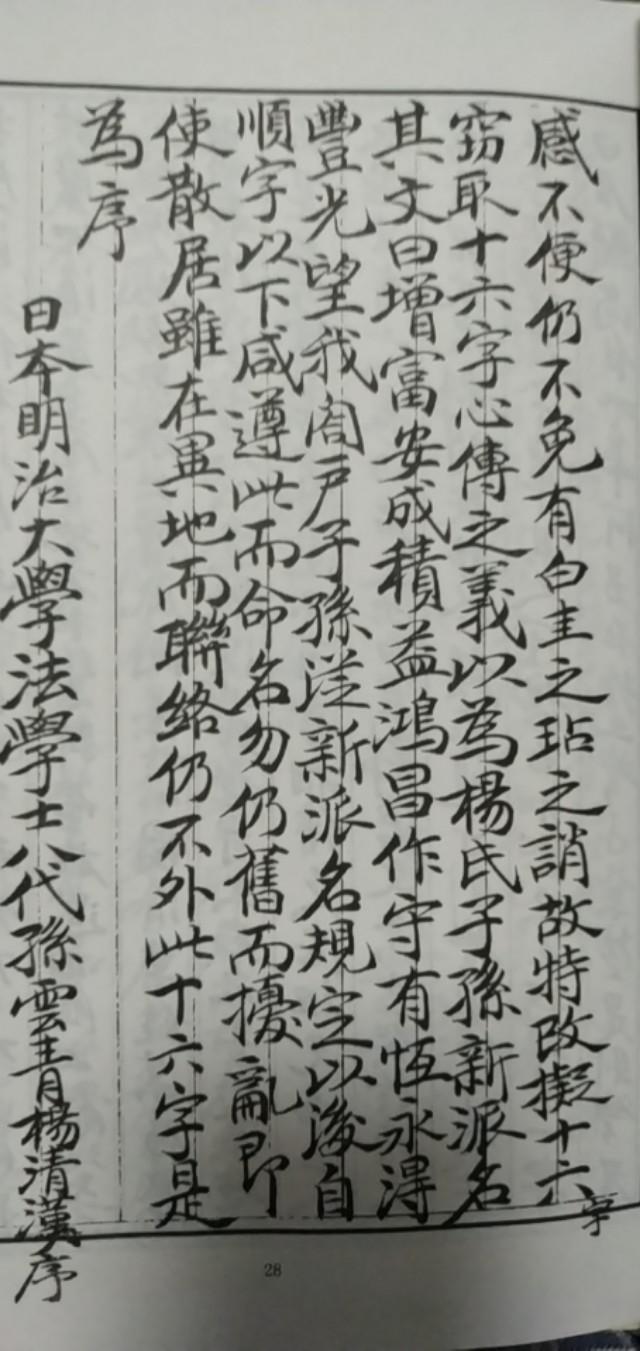 感不便仍不免有白圭之玷之誚故特改擬十六字
窃取十六字心傳之義以為楊氏子孫新派名
其文曰增富安成積益鴻昌作守有恆永得
豐光望我閤戶子孫從新派名規定以後自
順字以下咸遵此而命名勿仍舊而擾亂即
使散居雖在異地而聯絡仍不外此十六字是
為序
日本明治大學法學士八代孫雲青楊清漢序
28